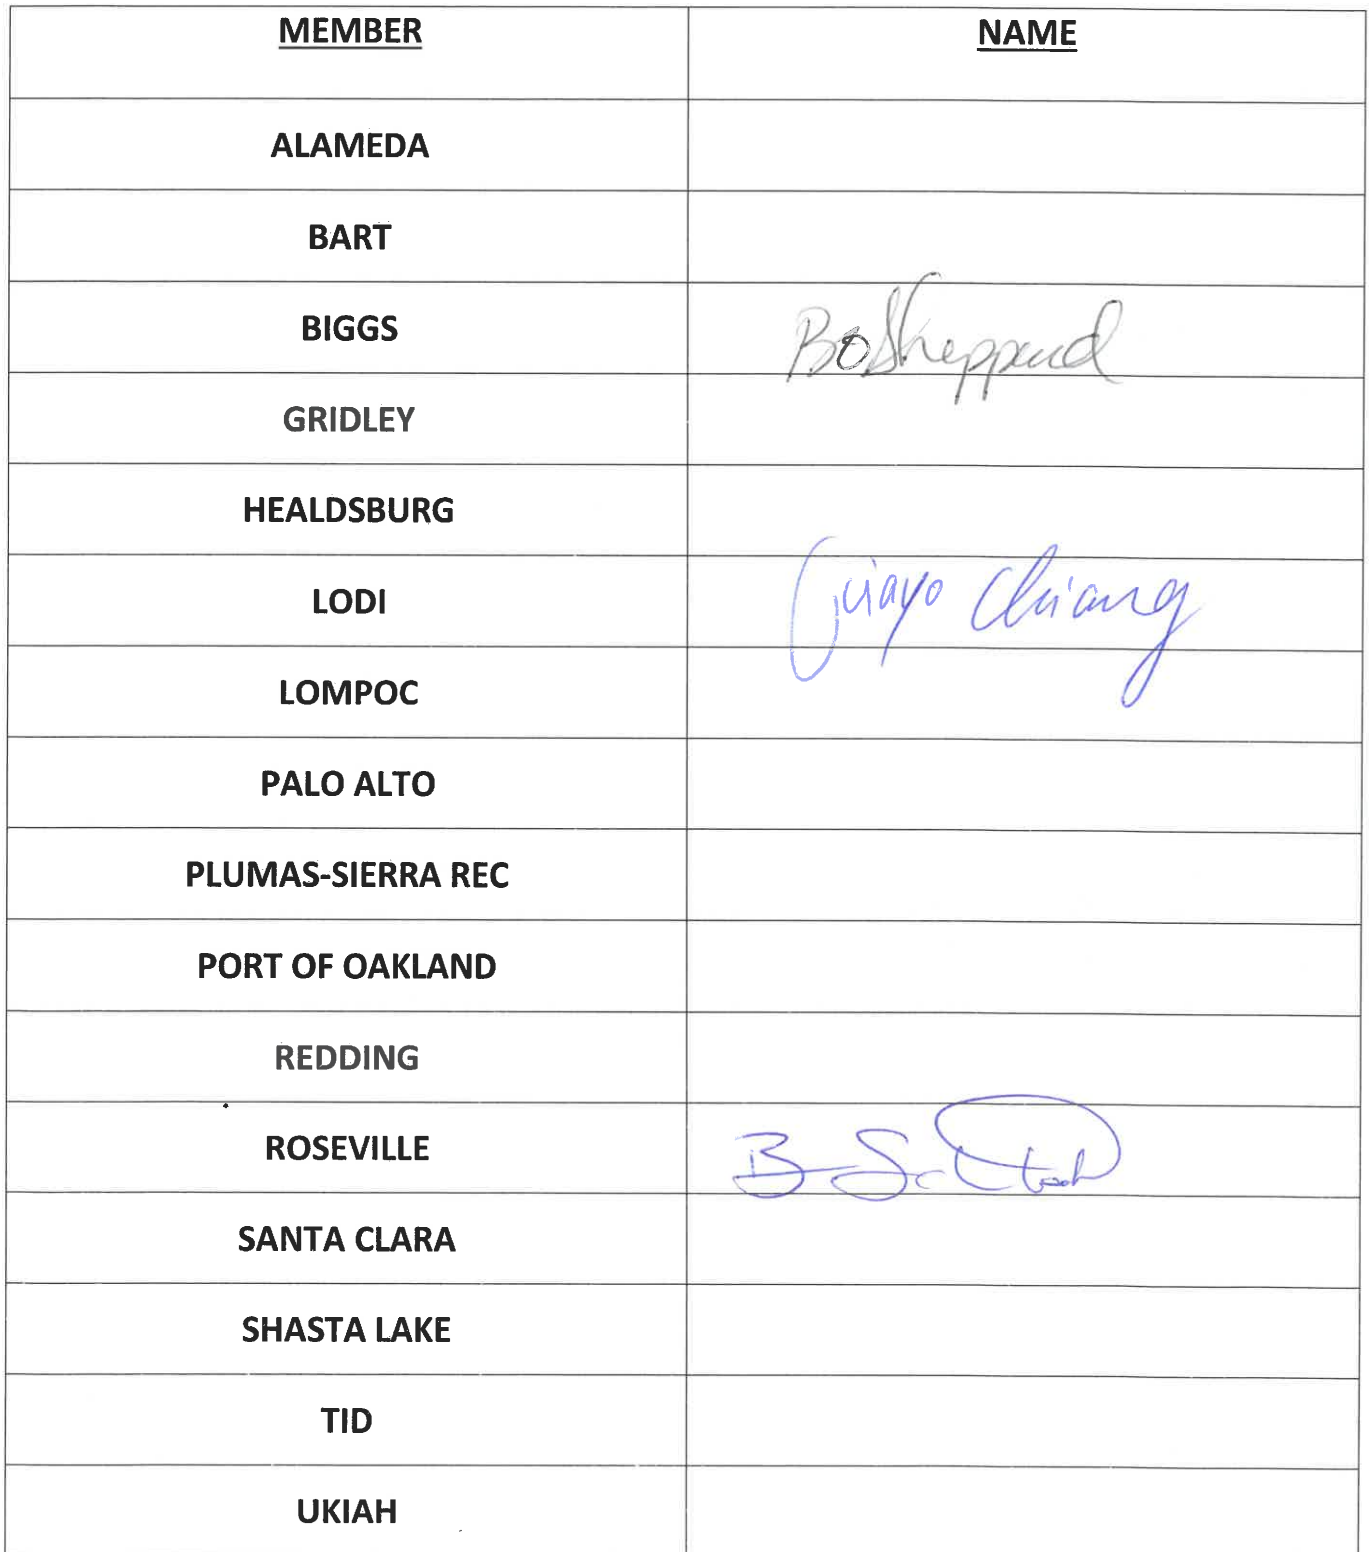 MEMBER NAME
ALAMEDA
BART
BIGGS Bo Sheppard
GRIDLEY
HEALDSBURG
LODI Jiayo Chiang
LOMPOC
PALO ALTO
PLUMAS-SIERRA REC
PORT OF OAKLAND
REDDING
ROSEVILLE B
SANTA CLARA
SHASTA LAKE
TID
UKIAH